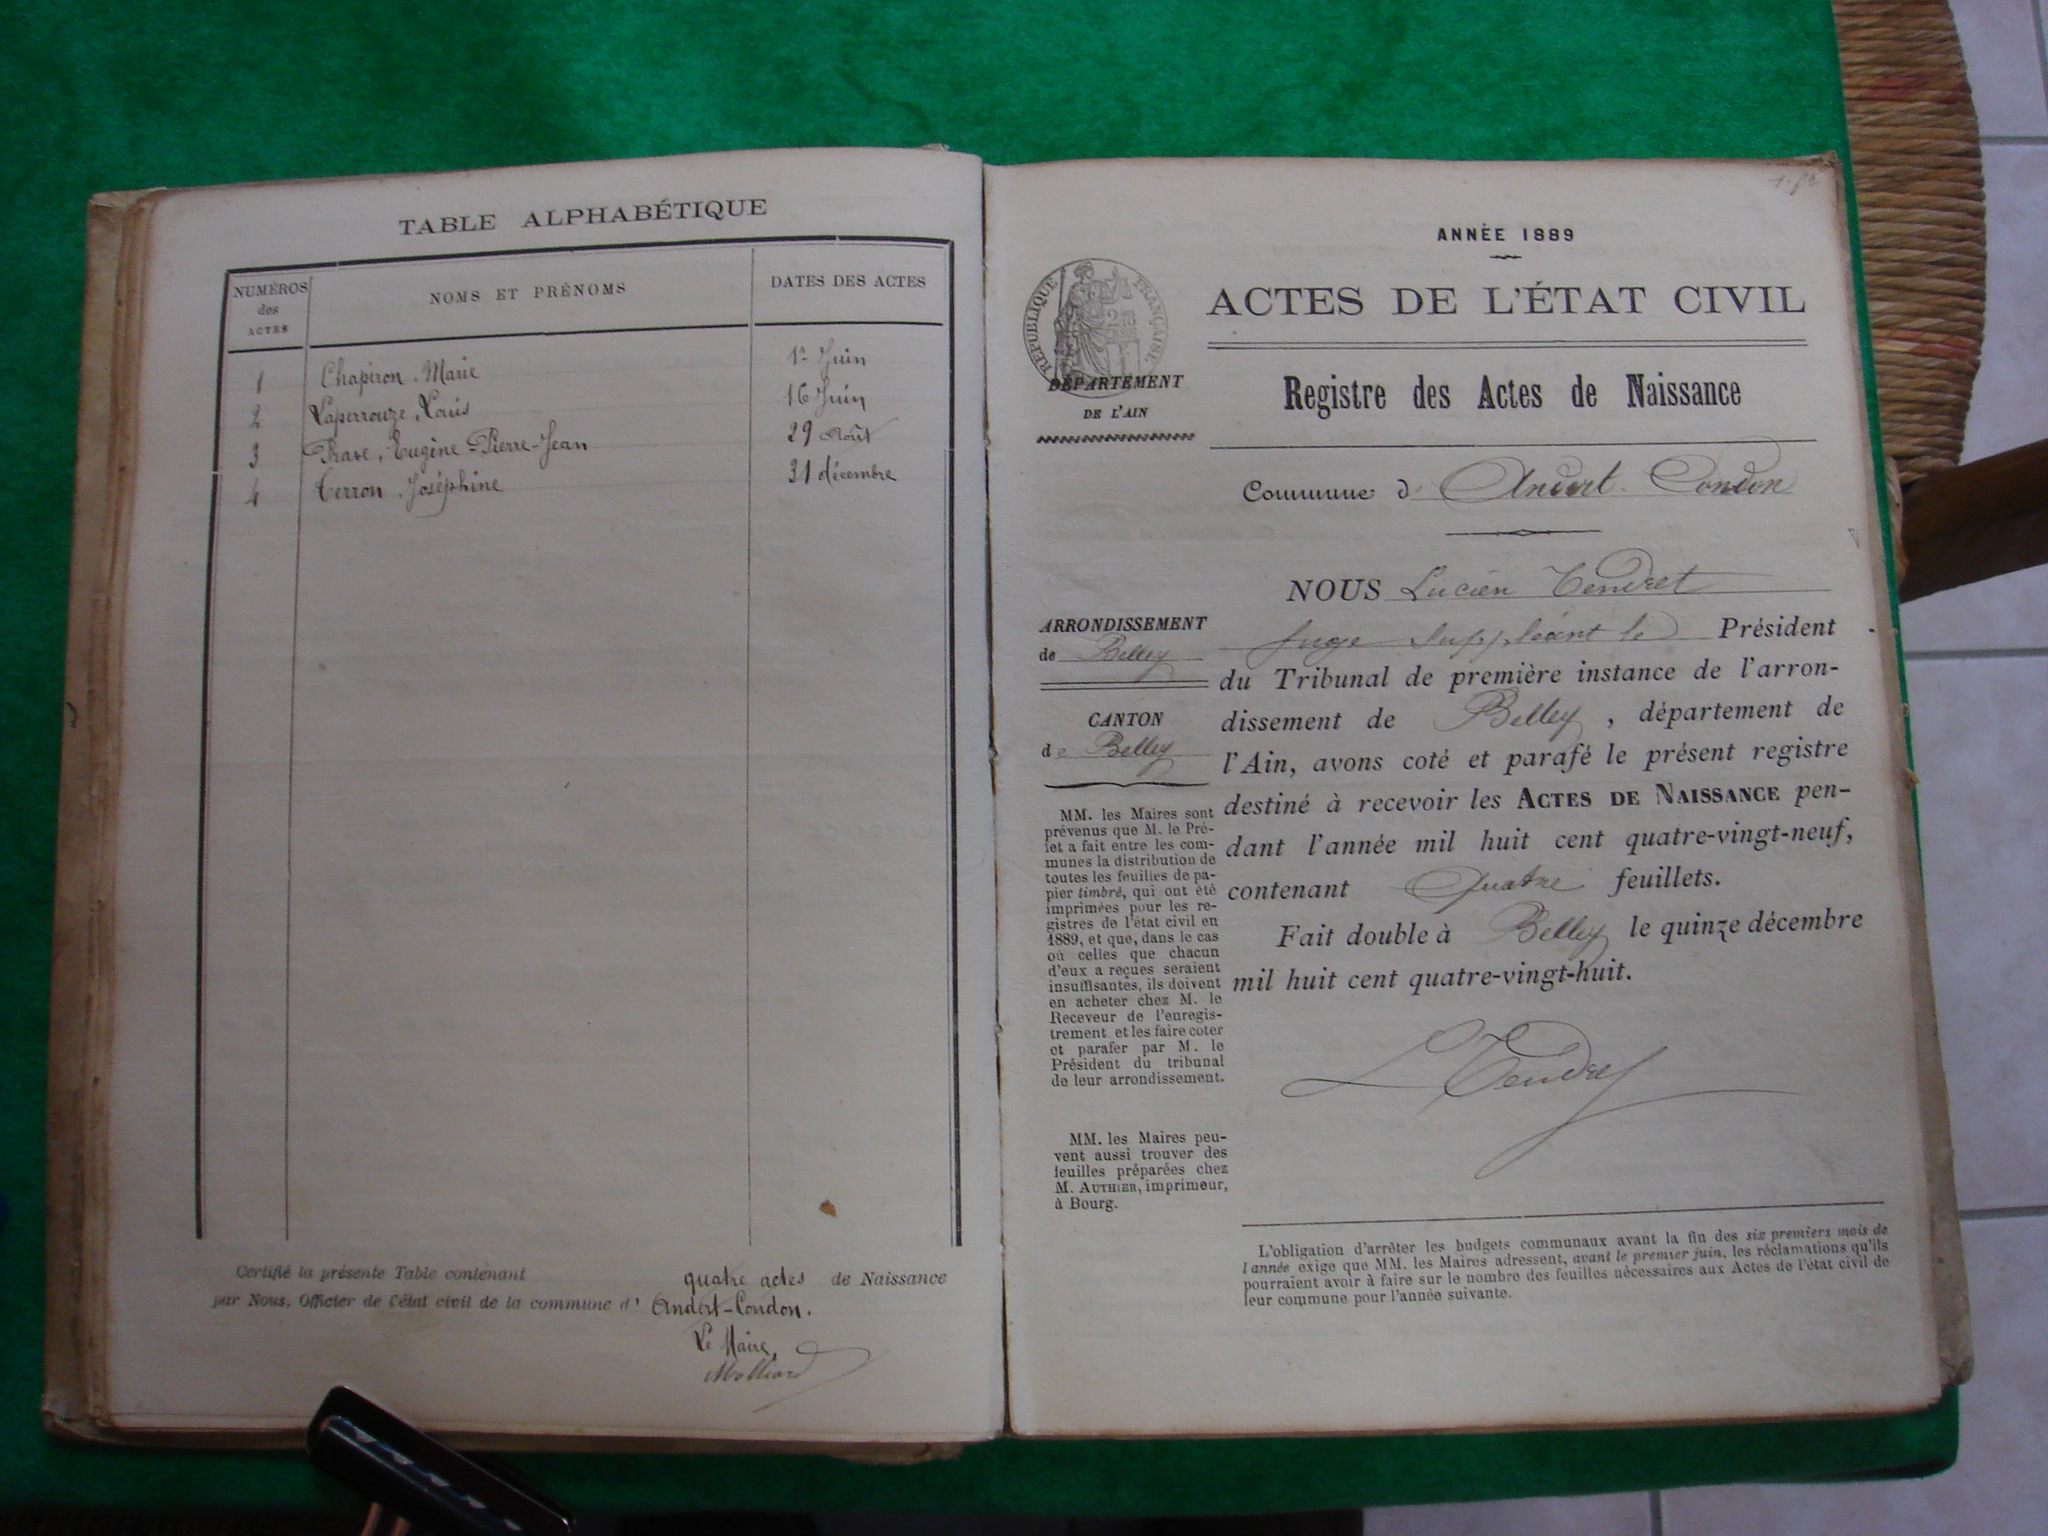 TABLE ALPHABÉTIQUE
NUMÉROS des ACTES
NOMS ET PRÉNOMS
DATES DES ACTES
1 Chapiron, Marie 1er Juin
2 Laperrouze, Louis 16 Juin
3 Eugène-Pierre-Jean 29 Août
4 Cerron, Joséphine 31 décembre
Certifié la présente Table contenant quatre actes de Naissance
par Nous, Officier de l'état civil de la commune d'Andert-Condon.
Le Maire,
Molliard
ANNÉE 1889
RÉPUBLIQUE FRANÇAISE
ACTES DE L'ÉTAT CIVIL
DÉPARTEMENT
DE L'AIN
Registre des Actes de Naissance
Commune d' Andert-Condon
NOUS Lucien Tendret
Juge Suppléant le Président
du Tribunal de première instance de l'arron-
dissement de Belley, département de
l'Ain, avons coté et parafé le présent registre
destiné à recevoir les ACTES DE NAISSANCE pen-
dant l'année mil huit cent quatre-vingt-neuf,
contenant Quatre feuillets.
Fait double à Belley le quinze décembre
mil huit cent quatre-vingt-huit.
L Tendret
ARRONDISSEMENT
de Belley
CANTON
de Belley
MM. les Maires sont
prévenus que M. le Pré-
fet a fait entre les com-
munes la distribution de
toutes les feuilles de pa-
pier timbré, qui ont été
imprimées pour les re-
gistres de l'état civil en
1889, et que, dans le cas
où celles que chacun
d'eux a reçues seraient
insuffisantes, ils doivent
en acheter chez M. le
Receveur de l'enregis-
trement et les faire coter
et parafer par M. le
Président du tribunal
de leur arrondissement.
MM. les Maires peu-
vent aussi trouver des
feuilles préparées chez
M. AUTHIER, imprimeur,
à Bourg.
L'obligation d'arrêter les budgets communaux avant la fin des six premiers mois de
l'année exige que MM. les Maires adressent, avant le premier juin, les réclamations qu'ils
pourraient avoir à faire sur le nombre des feuilles nécessaires aux Actes de l'état civil de
leur commune pour l'année suivante.